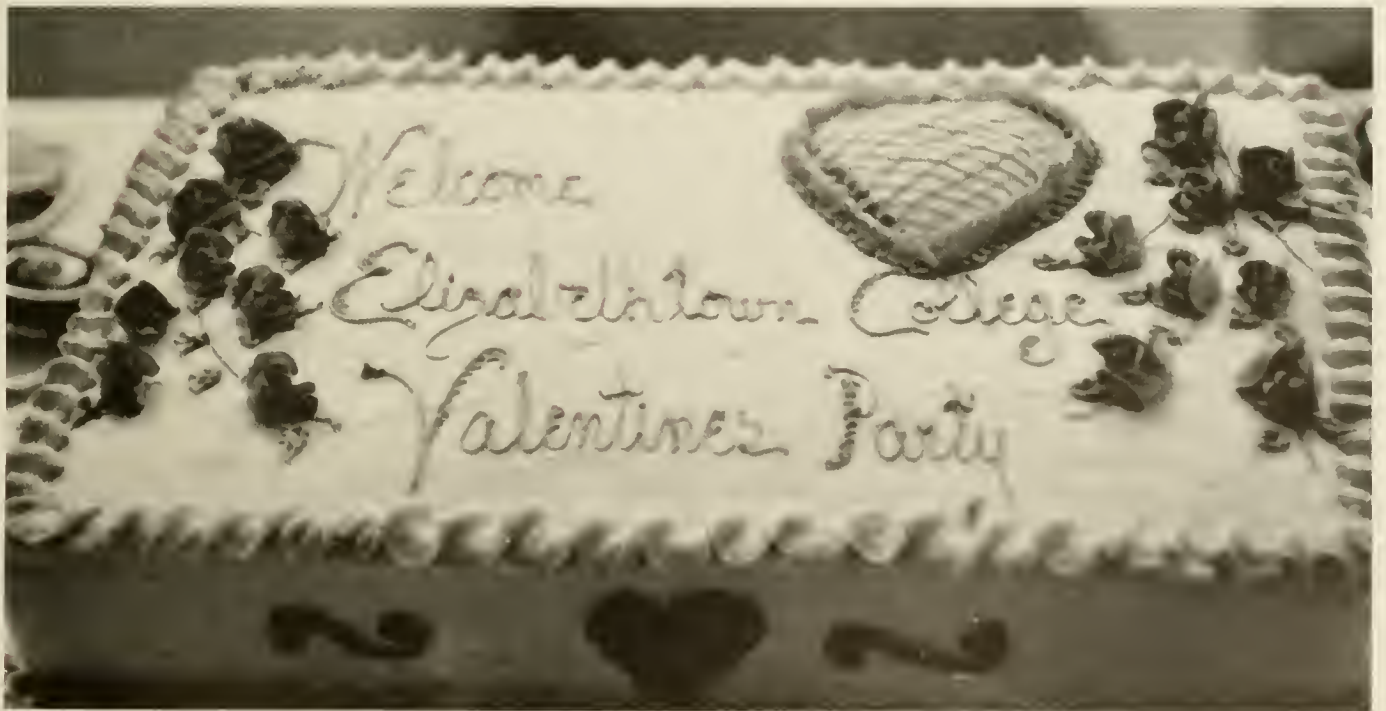 Welcome
Elizabethtown College
Valentines Party